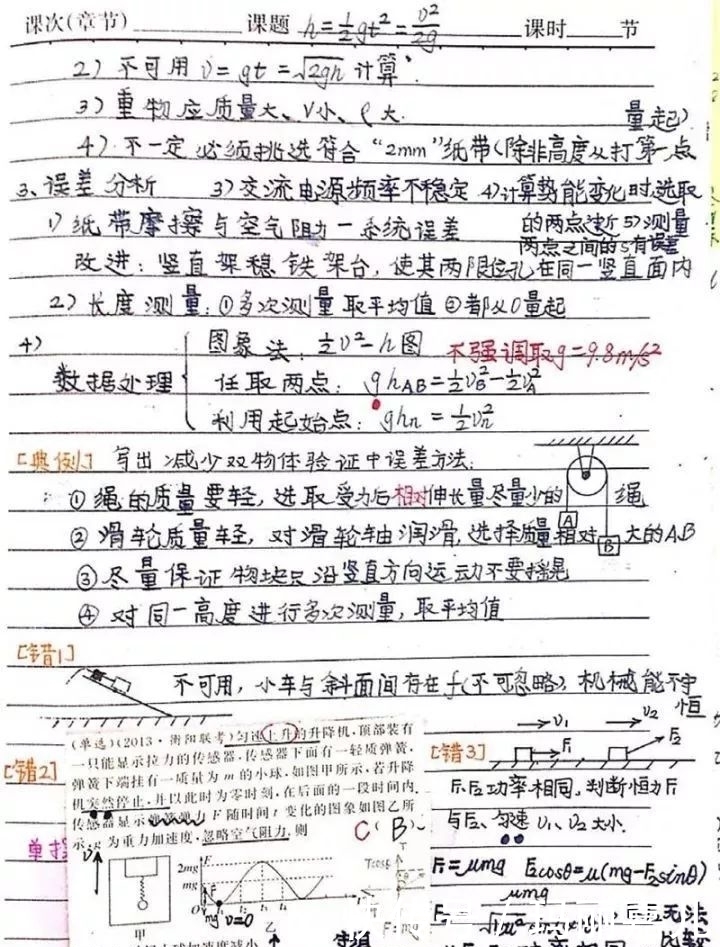 课次(章节)________课题 h=½gt²=v²/2g 课时____节
2) 不可用 v=gt=√2gh 计算
3) 重物应质量大、V小、ρ大. 量起)
4) 不一定必须挑选符合“2mm”纸带(除非高度从打第一点
3、误差分析 3)交流电源频率不稳定 4)计算势能变化时选取
1) 纸带摩擦与空气阻力—系统误差 的两点过近 5)测量
两点之间的s有误差
改进:竖直架稳铁架台,使其两限位孔在同一竖直面内
2) 长度测量:①多次测量取平均值 ②都从0量起
4) 图象法:½v²-h图 不强调取g=9.8m/s²
数据处理 任取两点:ghAB=½vB²-½vA²
利用起始点:ghn=½vn²
[典例] 写出减少双物体验证中误差方法:
①绳的质量要轻,选取受力后相对伸长量尽量少的绳
A
②滑轮质量轻,对滑轮轴润滑,选择质量相对大的A、B
B
③尽量保证物块只沿竖直方向运动不要摇晃
④对同一高度进行多次测量,取平均值
[错1]
不可用,小车与斜面间存在f(不可忽略),机械能不守恒
[错2]
(单选)(2013·衡阳联考)匀速上升的升降机,顶部装有
一只能显示拉力的传感器,传感器下面有一轻质弹簧,
弹簧下端挂有一质量为m的小球,如图甲所示,若升降
机突然停止,并以此时为零时刻,在后面的一段时间内,
传感器显示弹簧弹力F随时间t变化的图象如图乙所
示,g为重力加速度,忽略空气阻力,则 C(B)
F
2mg
mg
O t₁ t₂ t₃ t₄ t
mg v=0
甲 乙
[错3]
v₁ v₂
F₁ F₂
F₁、F₂功率相同,判断恒力F₁
与F₂、匀速v₁、v₂大小.
F₁=μmg F₂cosθ=μ(mg-F₂sinθ)
μmg
无法